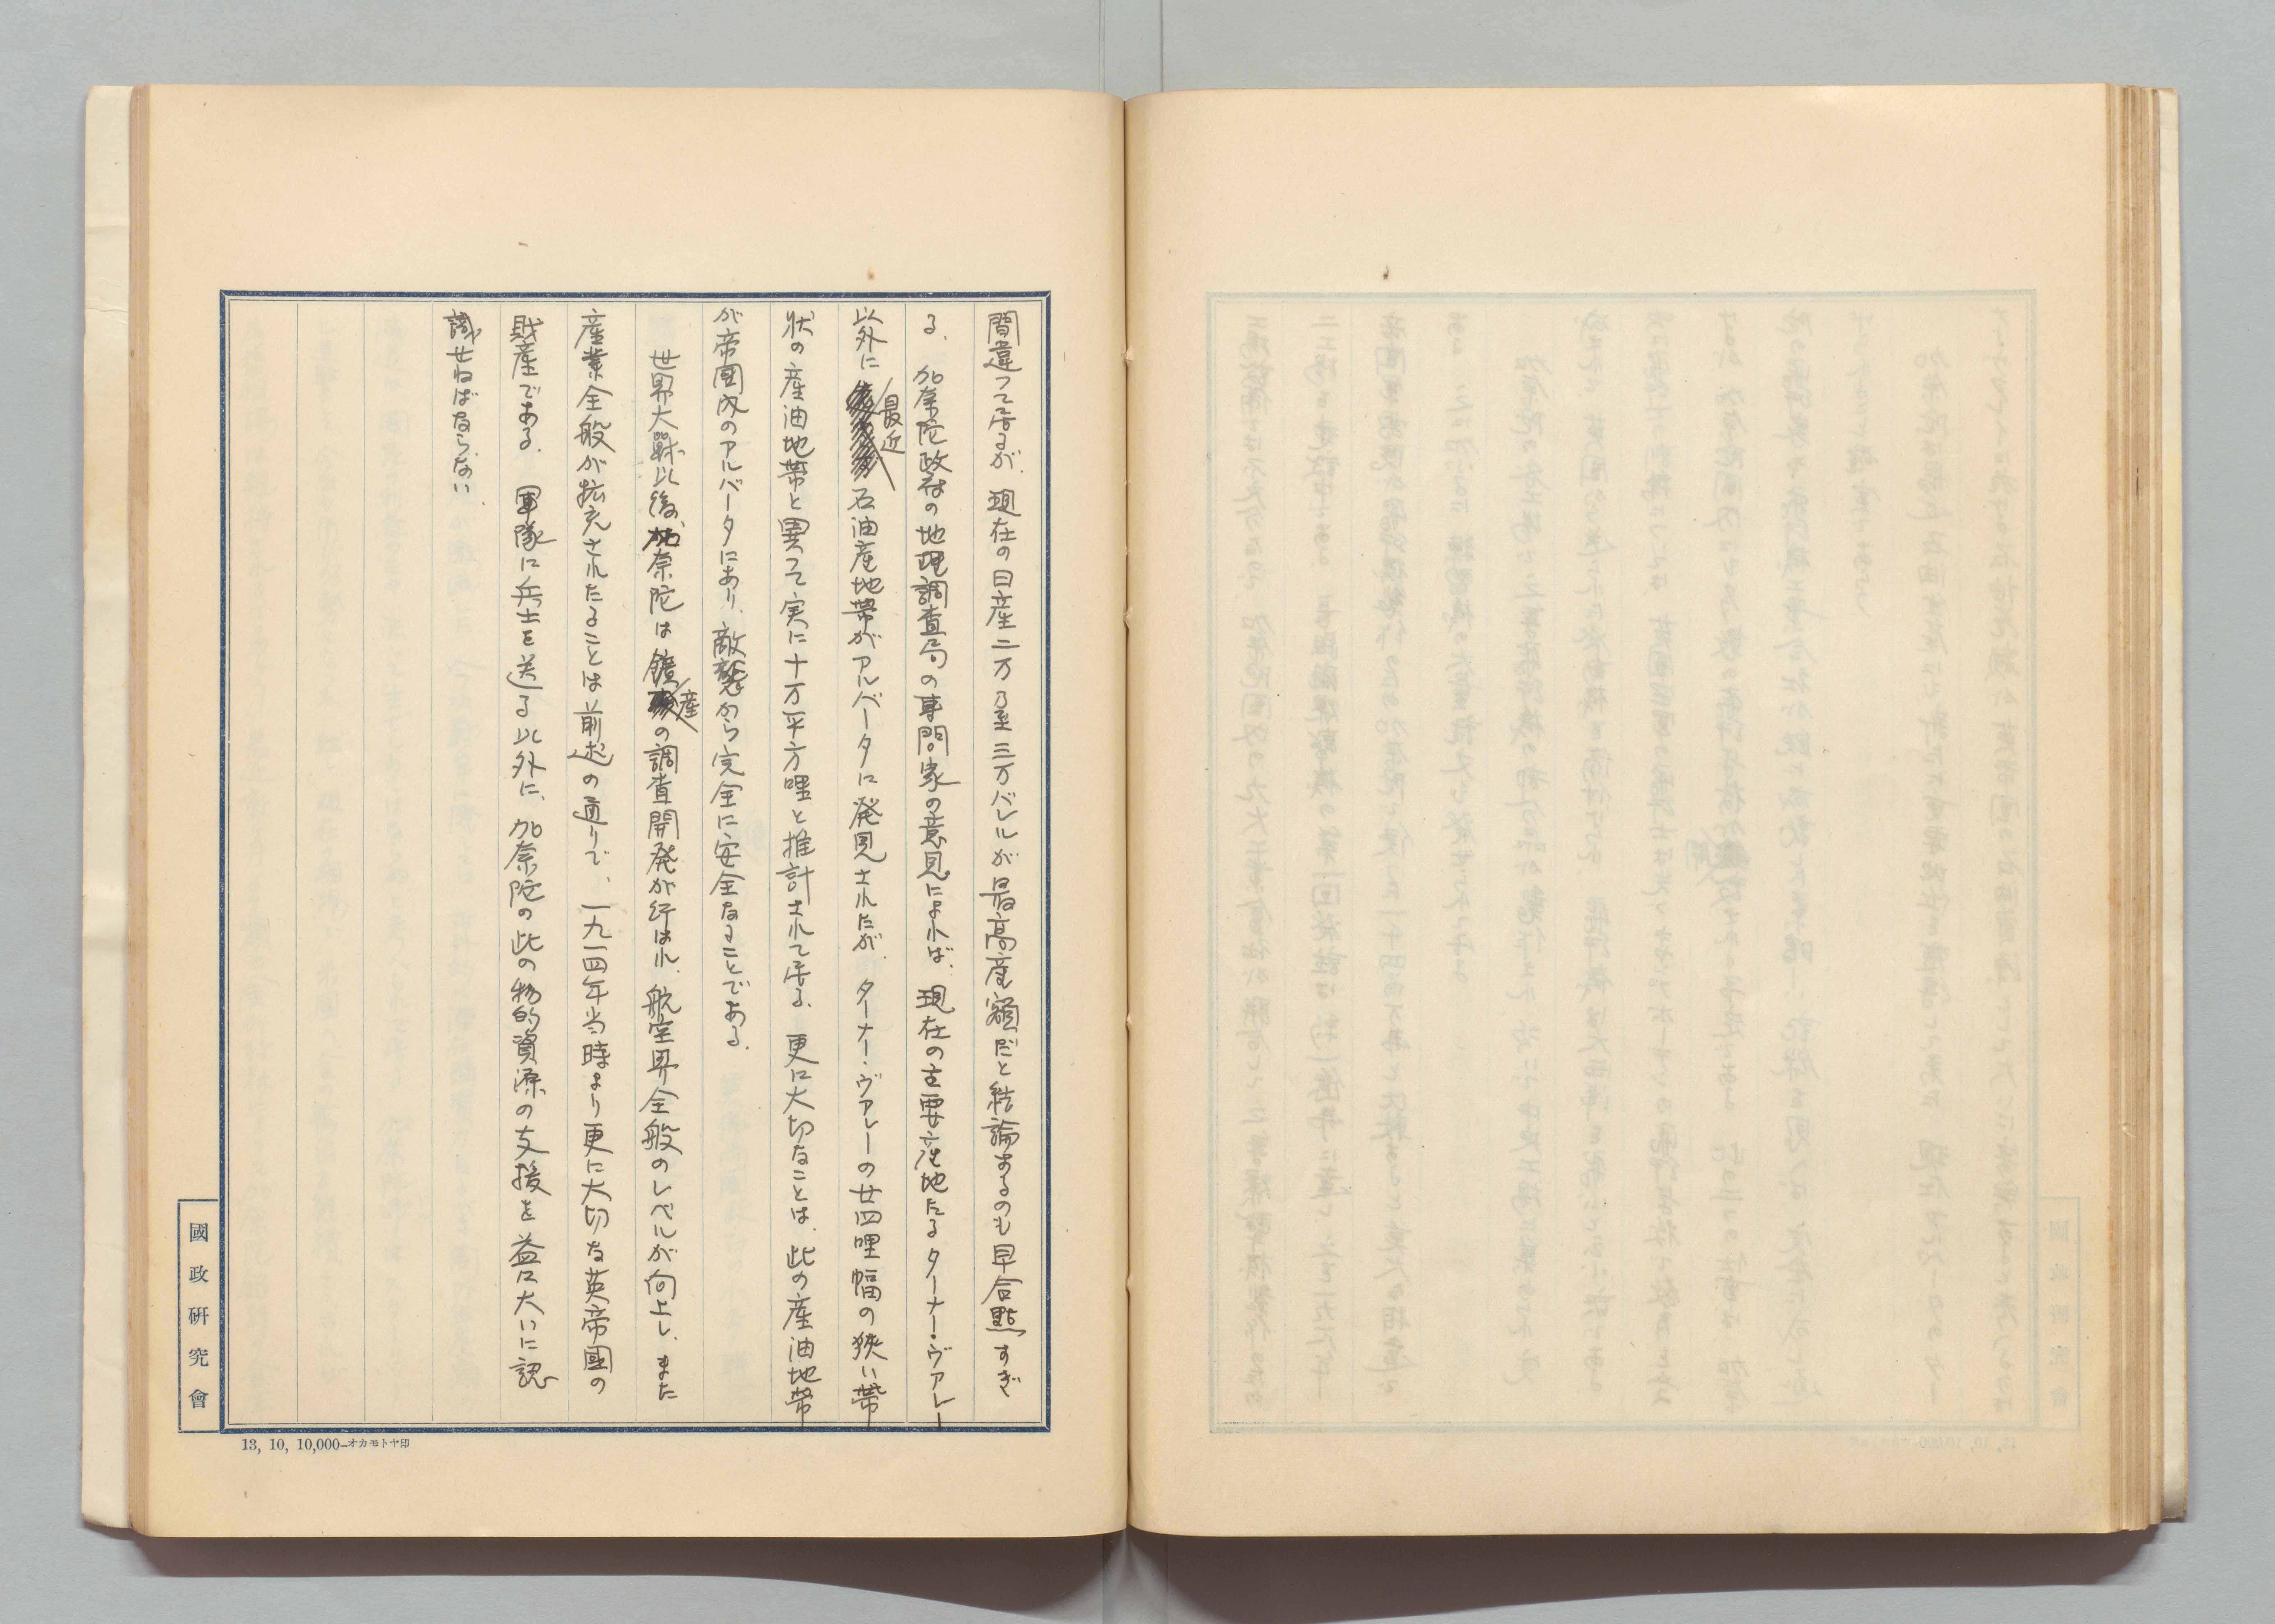 間違つて居るが、現在の日産二万乃至三万バレルが最高産額だと結論するのも早合點すぎ
る、加奈陀政府の地理調査局の専問家の意見によれば、現在の主要産地たるターナー・ヴァレー
以外に最近石油産地帯がアルバータに発見されたが、ターナー・ヴァレーの廿四哩幅の狹い帶
状の産油地帯と異つて実に十万平方哩と推計されて居る、更に大切なことは、此の産油地帯
が帝國内のアルバータにあり、敵襲から完全に安全なることである、
世界大戰以後、加奈陀は鑛産の調査開発が行はれ、航空界全般のレベルが向上し、また
産業全般が拡充されたることは前述の通りで、一九一四年当時より更に大切な英帝國の
財産である、軍隊に兵士を送る以外に、加奈陀の此の物的資源の支援を益に大いに認
識せねばならない
國政硏究會
13, 10, 10,000—オカモトヤ印